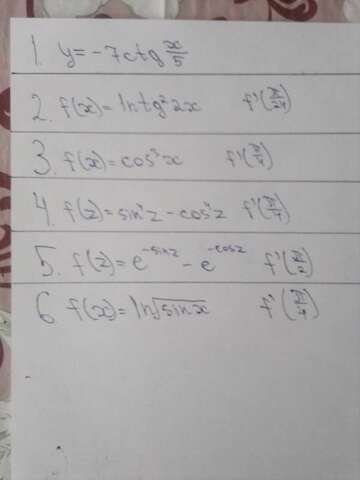 1. y = -7ctg x/5
2. f(x) = ln tg² 2x f'(π/24)
3. f(x) = cos² x f'(π/4)
4. f(z) = sin⁴z - cos⁴z f'(π/4)
5. f(z) = e^(-sinz) - e^(-cosz) f'(π/2)
6. f(x) = ln√sinx f'(π/4)